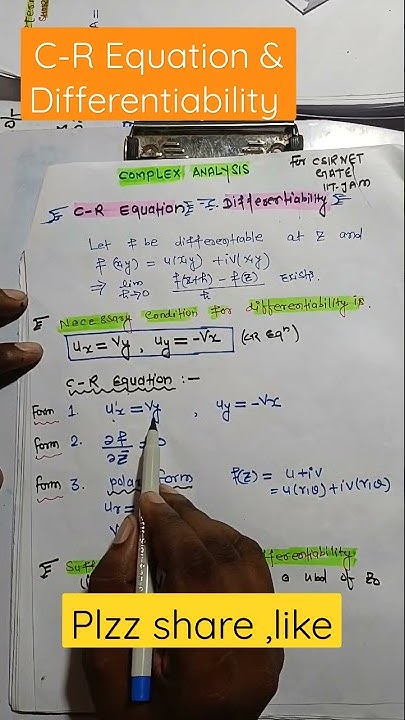 C-R Equation &
Differentiability
COMPLEX ANALYSIS
For CSIR NET
GATE
IIT-JAM
C-R Equation & Differentiability
Let f be differentiable at z and
f(x,y) = u(x,y) + iv(x,y)
⇒ lim h→0 f(z+h) - f(z) / h exists.
Necessary condition for differentiability is
ux = vy , uy = -vx (CR Eqn)
C-R Equation :-
Form 1. ux = vy , uy = -vx
Form 2. ∂f / ∂z̄ = 0
Form 3. polar form f(z) = u + iv
= u(r,θ) + iv(r,θ)
ur =
a nbd of z0
Plzz share ,like